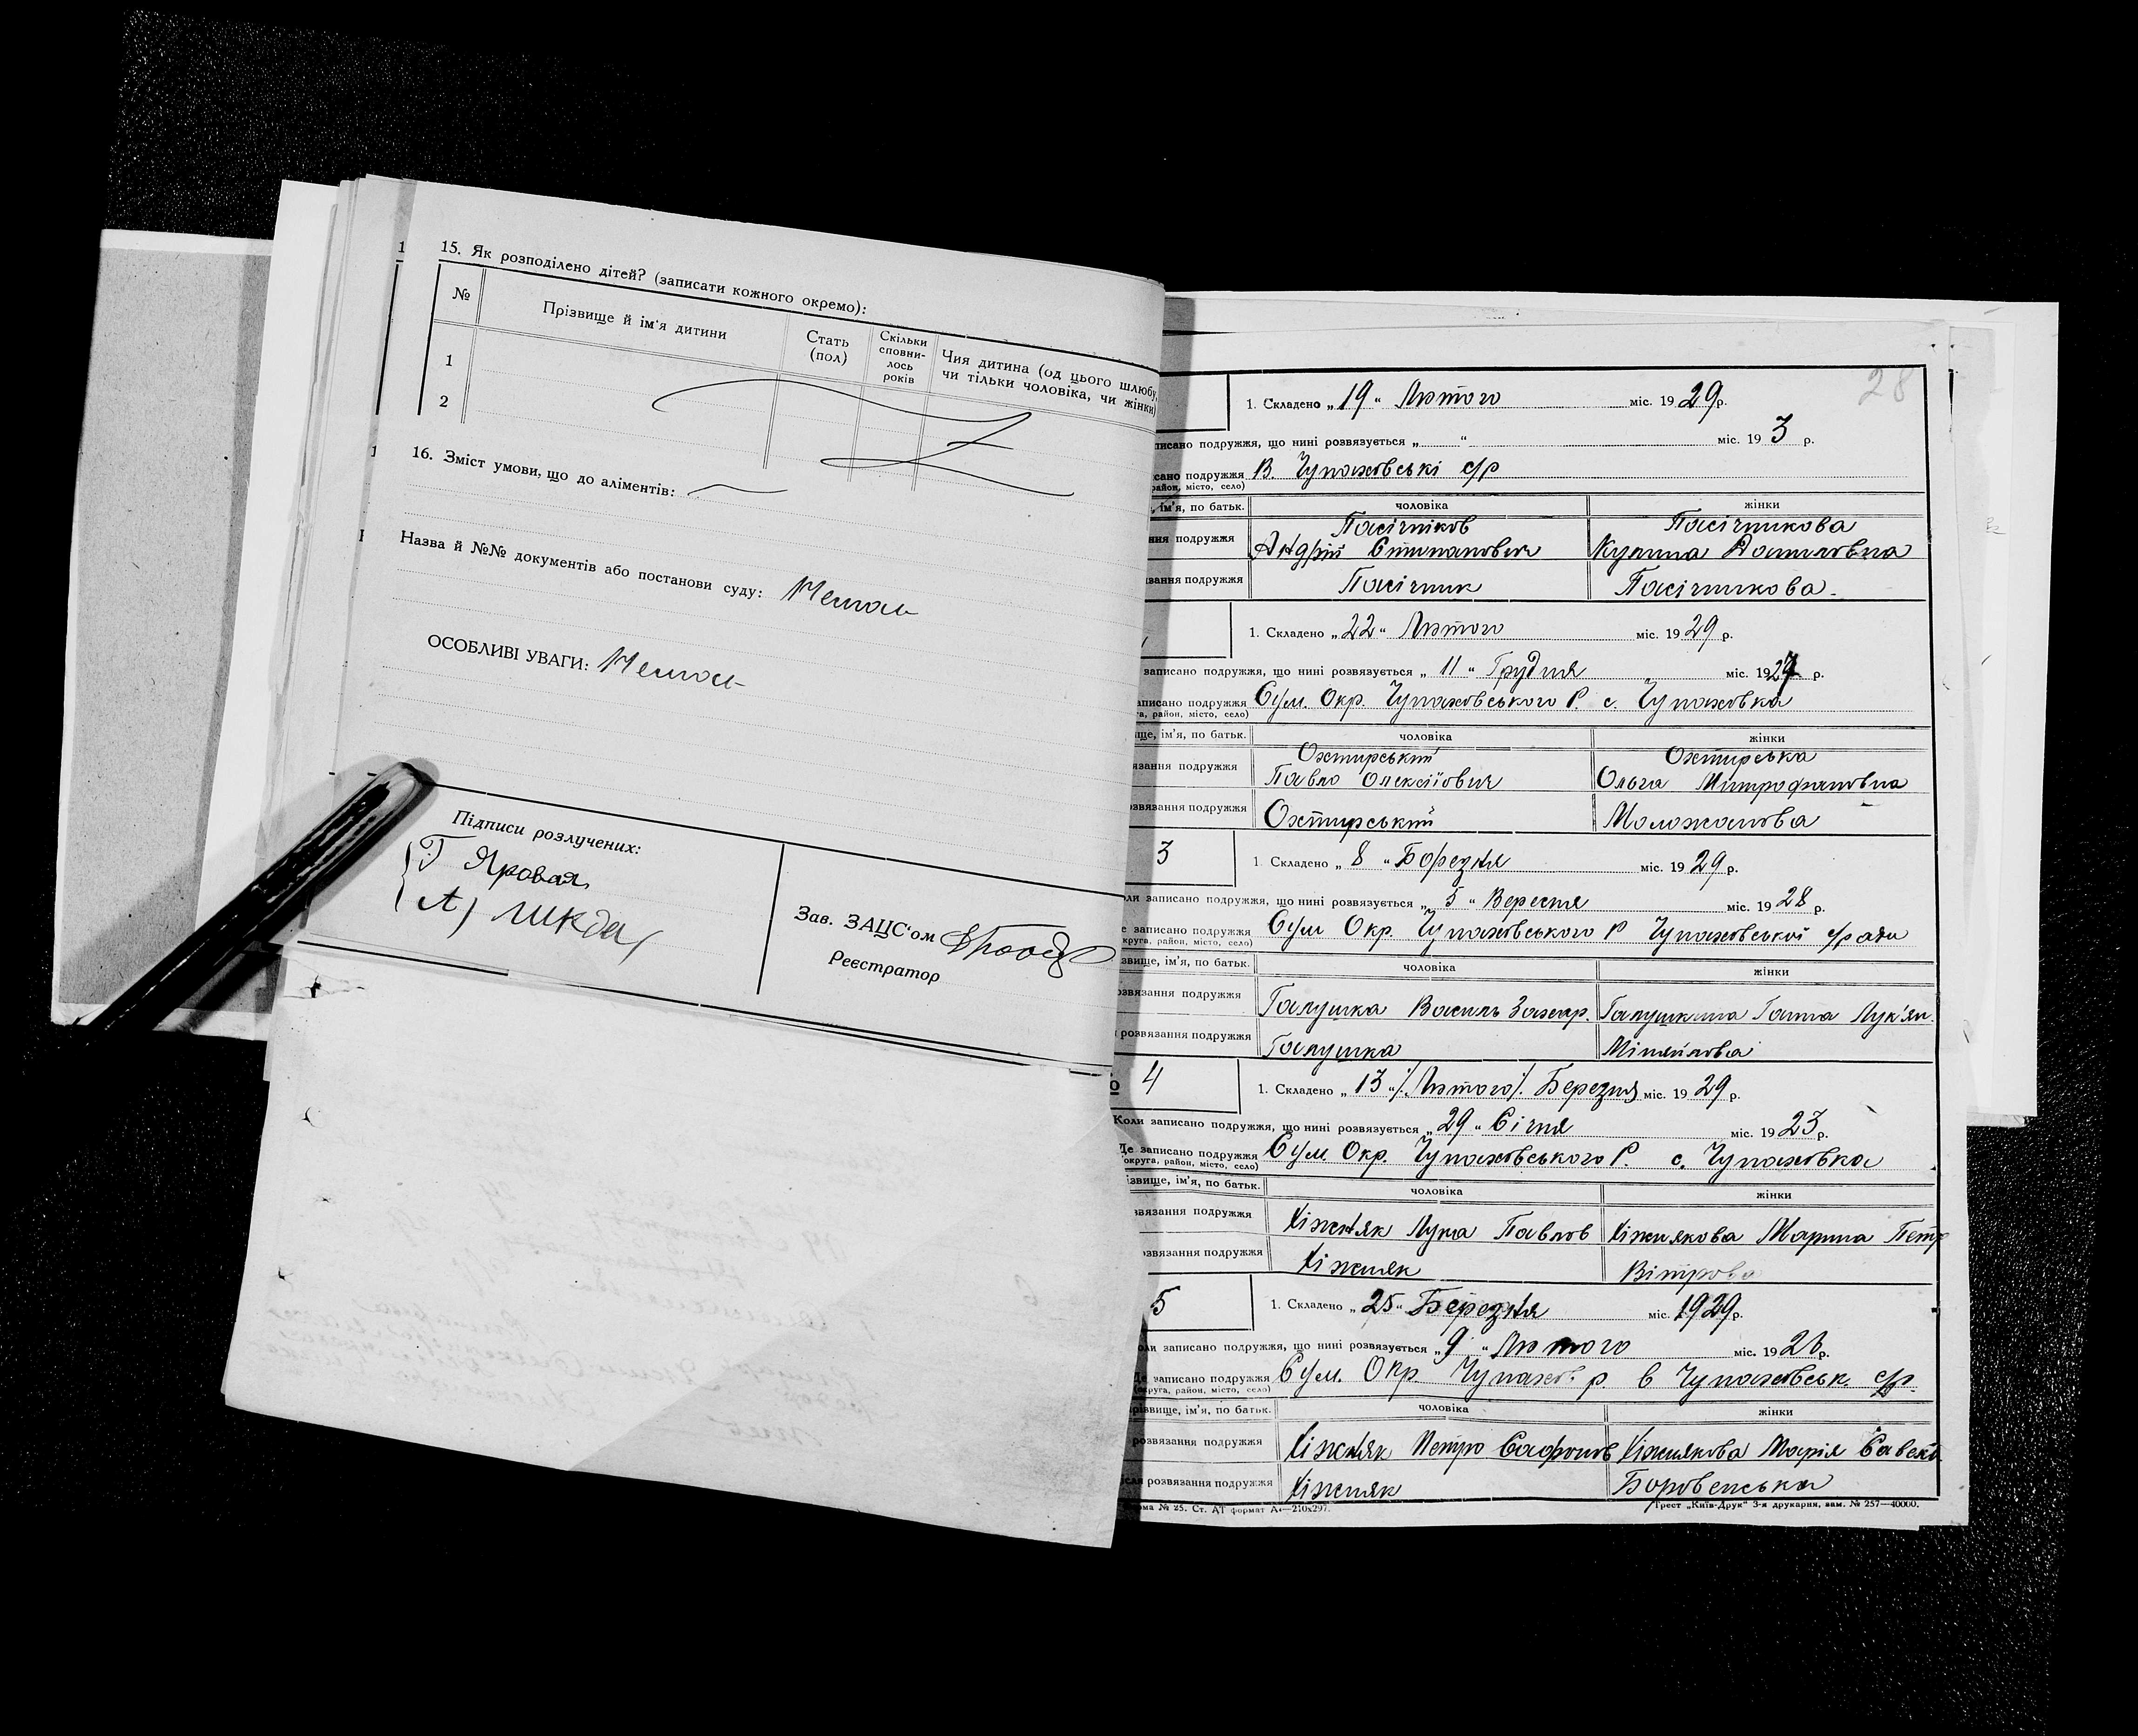 15. Як розподілено дітей? (записати кожного окремо):
№ Прізвище й ім'я дитини Стать (пол) Скільки сповни- лось років Чия дитина (од цього шлюбу, чи тільки чоловіка, чи жінки)
1
2
16. Зміст умови, що до аліментів: —
Назва й №№ документів або постанови суду: Немає
ОСОБЛИВІ УВАГИ: Немає
Підписи розлучених:
Г Яровая
Зав. ЗАЦС'ом
Реєстратор
28
1. Складено „19" Лютого міс. 1929р.
писано подружжя, що нині розвязується „ " міс. 193 р.
сано подружжя В. Чупахівські с/р
район, місто, село)
ім'я, по батьк. чоловіка жінки
Пасічніков Пасічникова
ння подружжя Андрій Степанович Даниловна
зання подружжя Пасічник Пасічникова
1. Складено „22" Лютого міс. 1929 р.
записано подружжя, що нині розвязується „11" Грудня міс. 1927 р.
аписано подружжя Сум. Окр. Чупахівського Р. с. Чупахівка
га, район, місто, село)
ще, ім'я, по батьк. чоловіка жінки
Охтирський Охтирська
язання подружжя Павло Олексіїович Ольга Митрофановна
озвязання подружжя Охтирський Моложанова
3 1. Складено „8" Борезня міс. 1929 р.
оли записано подружжя, що нині розвязується „5" Вересня міс. 1928 р.
е записано подружжя Сум Окр. Чупахівського Р Чупахівської с/ради
округа, район, місто, село)
звище, ім'я, по батьк. чоловіка жінки
озвязання подружжя Галушка Василь Захар. Галушкина Ганна Лук'ян.
розвязання подружжя Галушка Міняйлова
4 1. Складено „13" /.Лютого/. Березня міс. 1929 р.
Коли записано подружжя, що нині розвязується „29" Січня міс. 1923 р.
Де записано подружжя Сум. Окр. Чупахівського Р. с. Чупахівка
округа, район, місто, село)
ізвище, ім'я, по батьк. чоловіка жінки
звязання подружжя Кіжняк Лука Павлов Кіжнякова Марина Петр
озвязання подружжя Кіжняк Вітрова
5 1. Складено „25" Березня міс. 1929р.
оли записано подружжя, що нині розвязується „9" Лютого міс. 1926 р.
Де записано подружжя Сум. Окр. Чупахів. р. в Чупахівськ. с/р.
(округа, район, місто, село)
різвище, ім'я, по батьк. чоловіка жінки
розвязання подружжя Кіжняк Петро Сафонов Кіжнякова Марія Савел.
сля розвязання подружжя Кіжняк Боровенська
орма № 25. Ст. АІ формат А4—210x297. Трест „Київ-Друк" 3-я друкарня, зам. № 257—40000.